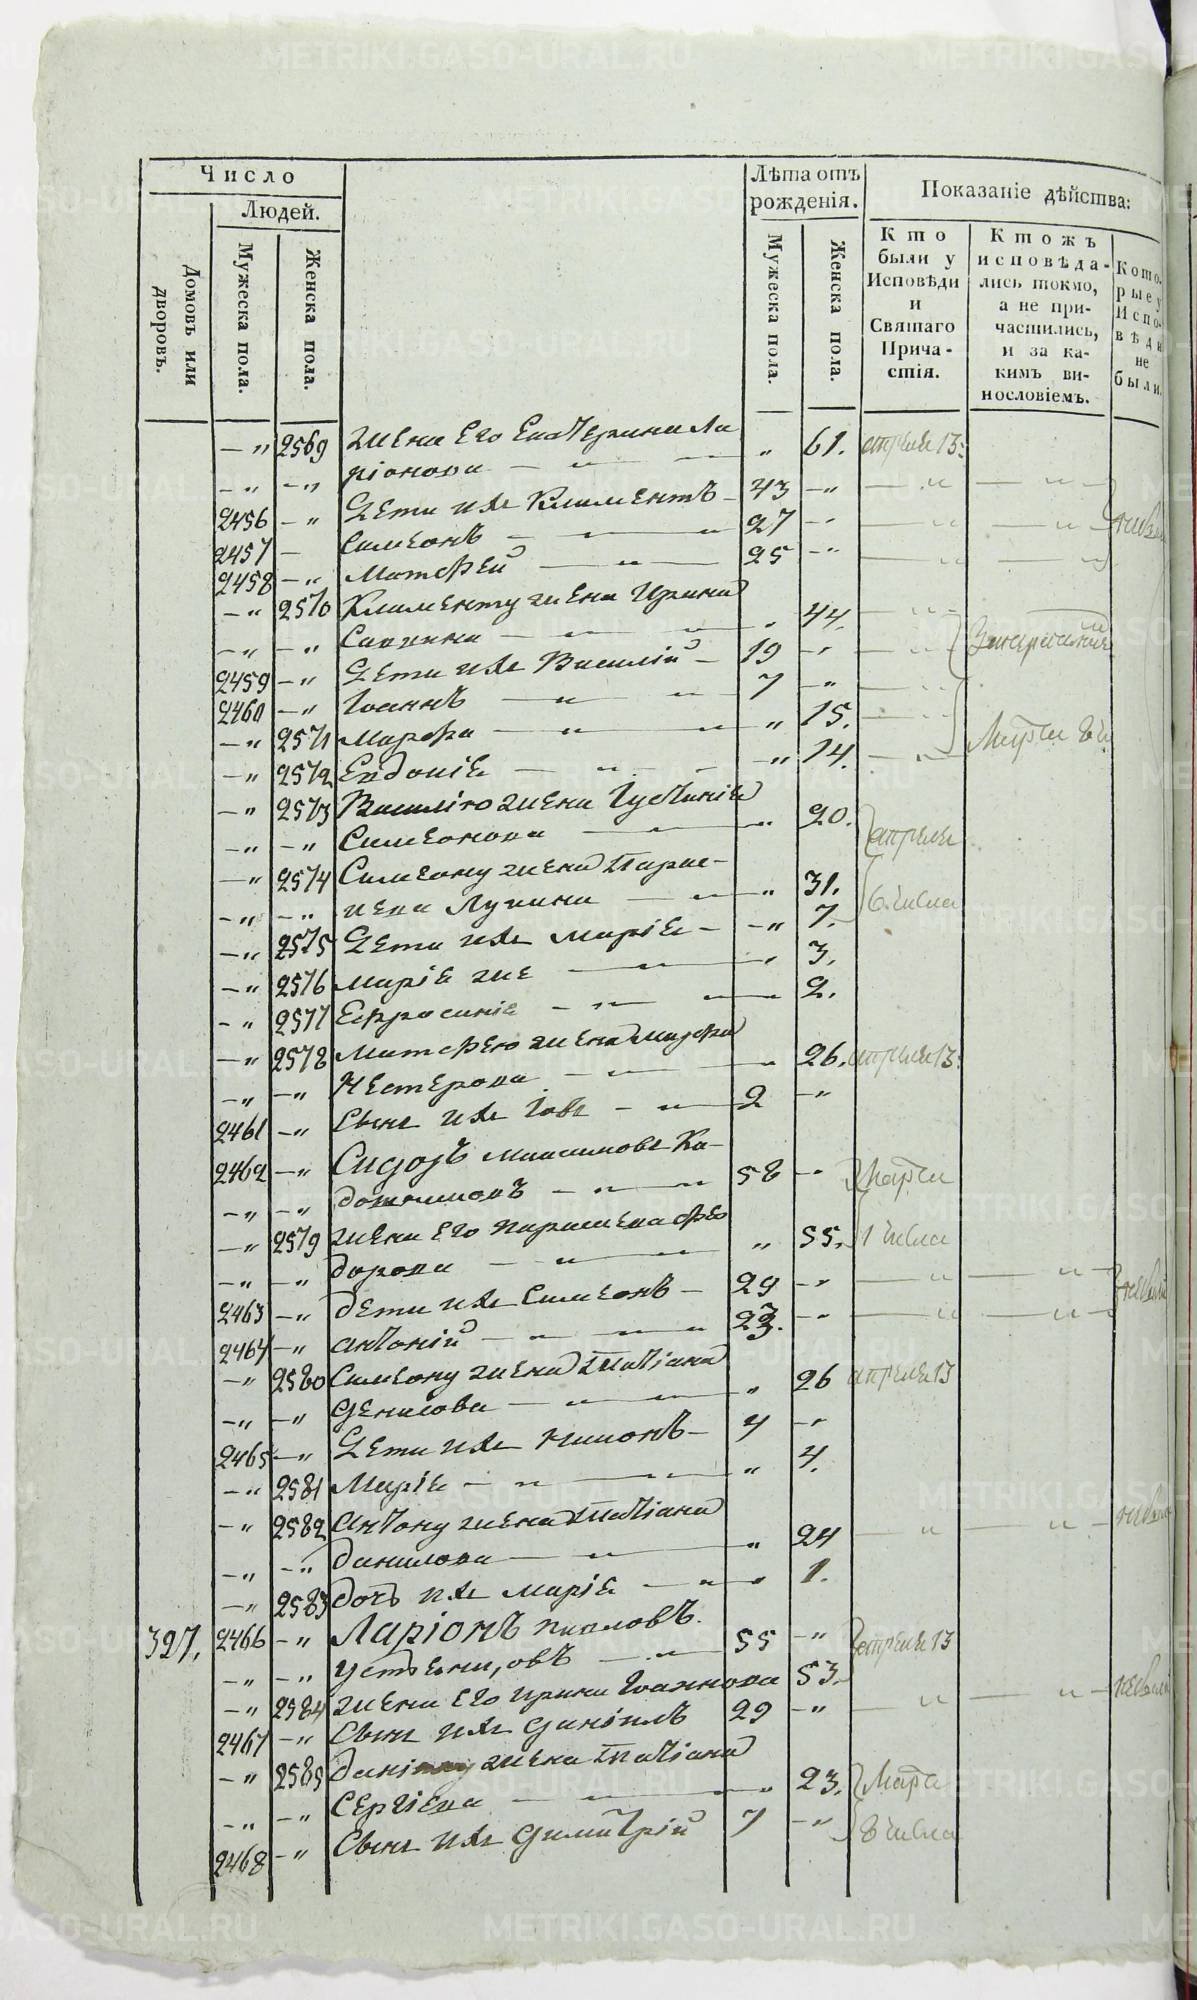 Число
Людей.
Домовъ или дворовъ.
Мужеска пола.
Женска пола.
Лѣта отъ рожденія.
Мужеска пола.
Женска пола.
Показаніе дѣйства:
Кто были у Исповѣди и Святаго Прича-стія.
Ктожъ исповѣда-лись токмо, а не при-частились, и за ка-кимъ ви-нословіемъ.
Кото-рые у Испо-вѣди не были.
— „ 2569 жена его Екатерина Ла
— „ — „ ріонова — „ — „ 61. апреля 13:
2456 — „ Дети ихъ Климентъ — 43 — „
2457 — Симеонъ — „ 27 — „
2458 — „ Матфей — „ 25 — „
— „ 2570 Клименту жена Ирина
— „ — „ Савина — „ — „ 44.
2459 — „ Дети ихъ Василій — 19 — „
2460 — „ Іоаннъ — „ — „ 7 — „
— „ 2571 Марфа — „ — „ 15.
— „ 2572 Евдокія — „ — „ 14. Марта 8 ч
— „ 2573 Василію жена Іустинія
— „ — „ Симеонова — „ 20. апреля
— „ 2574 Симеону жена Парас-
— „ — „ кева Лукина — „ 31. 6 числа
— „ 2575 Дети ихъ Марія — „ 7.
— „ 2576 Марія же — „ 3.
— „ 2577 Ефросинія — „ 2.
— „ 2578 Матфею жена Марфа
— „ — „ Нестерова — „ 26. апреля 13:
2461 — „ Сынъ ихъ Іовъ — „ 2 — „
2462 — „ Сидоръ Максимовъ Ка-
— „ — „ — „ — 58 — „ Марта
— „ 2579 жена его Параскева Фео
— „ — „ дорова — „ — „ 55. 1 числа
2463 — „ Дети ихъ Симеонъ — 29 — „
2464 — „ Антоній — „ — „ 23. — „
— „ 2580 Симеону жена Татіана
— „ — „ Денисова — „ — „ 26 апреля 13
2465 — „ Дети ихъ Никонъ — 4 — „
— „ 2581 Марія — „ — „ 4.
— „ 2582 Антону жена Татіана
— „ — „ Данилова — „ — „ 24
— „ 2583 Дочь ихъ Марія — „ — „ 1.
327. 2466 — „ Ларіонъ Павловъ
— „ — „ — „ 55 — „ апреля 13
— „ 2584 жена его Ирина Іоаннова 53.
2467 — „ Сынъ ихъ Даніилъ 29 — „
— „ 2585 Даніилу жена Татіана
— „ — „ Сергіева — „ — „ 23. Марта
2468 — „ Сынъ ихъ Димитрій 7 — „ 8 числа
METRIKI.GASO-URAL.RU